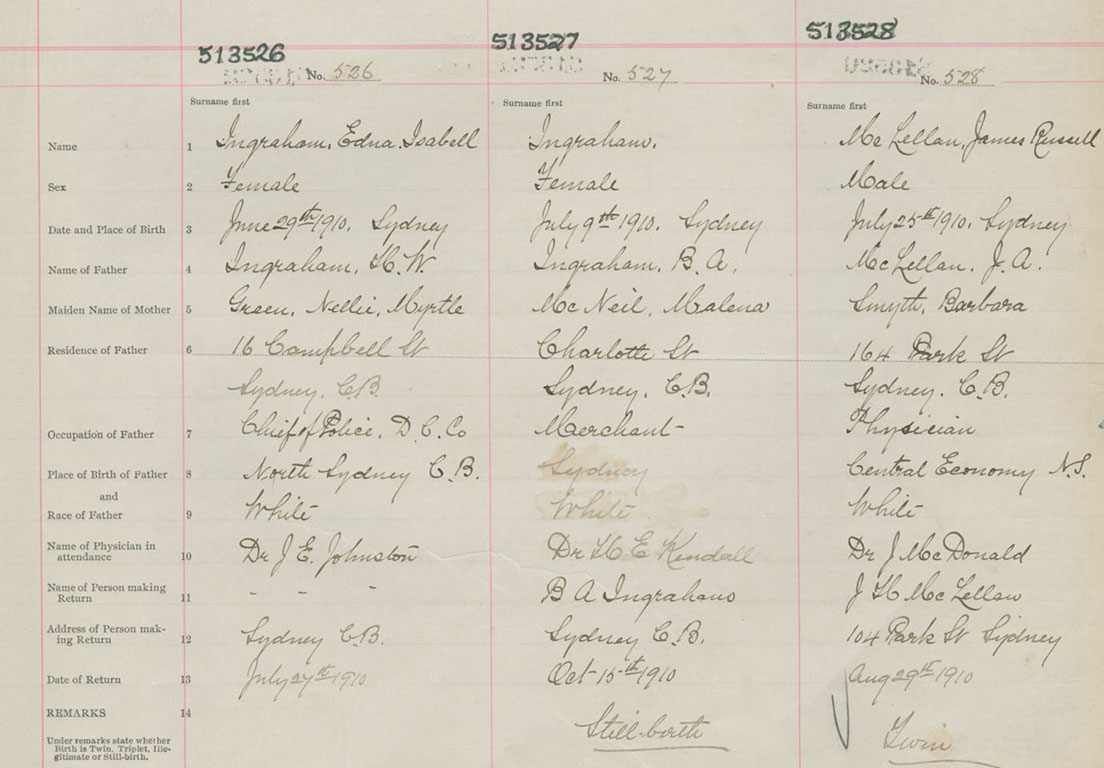 513526 513527 513528
No. 526 No. 527 No. 528
Surname first Surname first Surname first
Name 1 Ingraham, Edna Isabell Ingraham. Mc Lellan, James Russell
Sex 2 Female Female Male
Date and Place of Birth 3 June 29th 1910. Sydney July 9th 1910. Sydney July 25th 1910. Sydney
Name of Father 4 Ingraham, H. W. Ingraham, B. A. Mc Lellan. J. A.
Maiden Name of Mother 5 Green, Nellie, Myrtle Mc Neil, Malena Smyth, Barbara
Residence of Father 6 16 Campbell St Charlotte St 164 Park St
Sydney, C.B. Sydney, C.B. Sydney. C.B.
Occupation of Father 7 Chief of Police, D. C. Co Merchant Physician
Place of Birth of Father 8 North Sydney C.B. Sydney Central Economy N.S.
and
Race of Father 9 White White White
Name of Physician in
attendance 10 Dr J. E. Johnston Dr H E Kendall Dr J McDonald
Name of Person making
Return 11 - - - B A Ingraham J H McLellan
Address of Person mak-
ing Return 12 Sydney C.B. Sydney C.B. 104 Park St Sydney
Date of Return 13 July 27th 1910 Oct 15th 1910 Aug 29th 1910
REMARKS 14 Still-birth Twin
Under remarks state whether
Birth is Twin, Triplet, Ille-
gitimate or Still-birth.